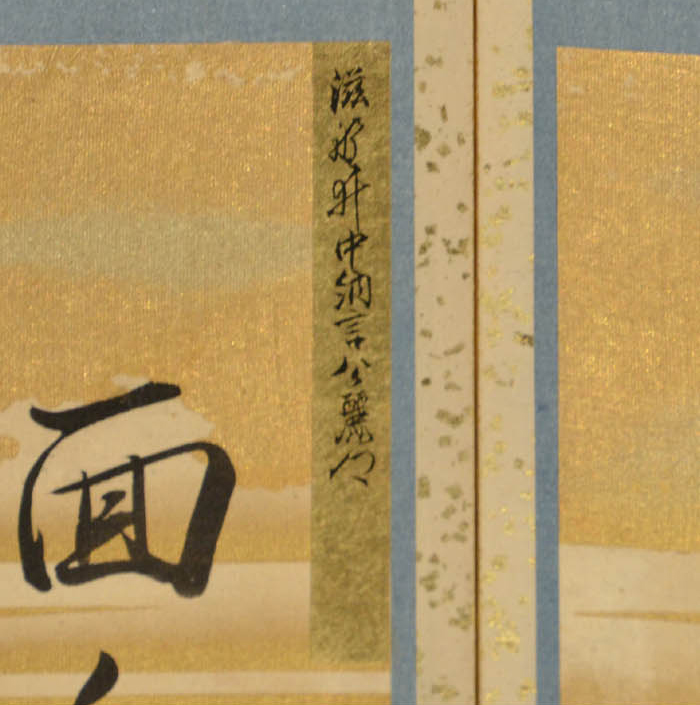 滋野井中納言公麗卿
面